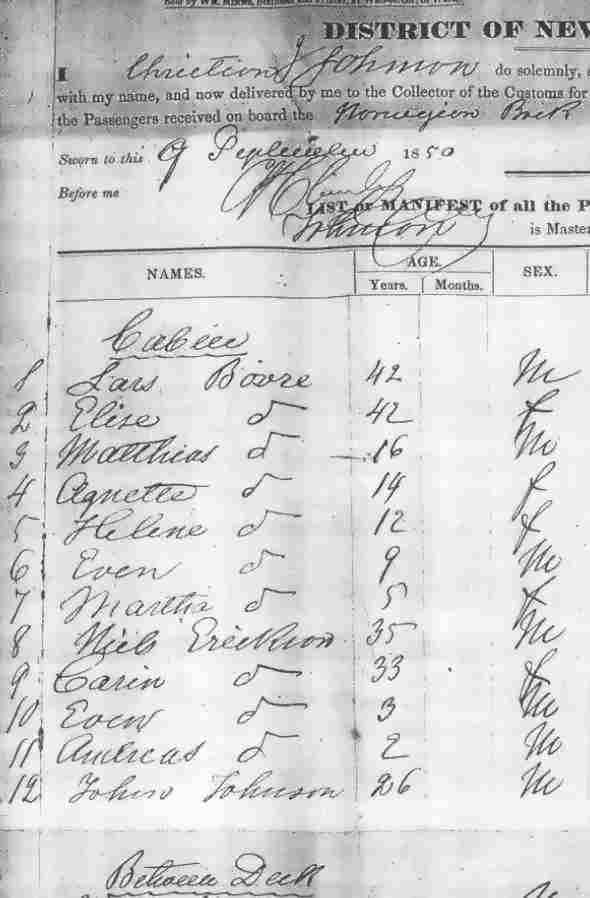 DISTRICT OF NEW
I Christian J Johnson do solemnly,
with my name, and now delivered by me to the Collector of the Customs for
the Passengers received on board the Norwegian Bark
Sworn to this 9 September 1850
Before me
LIST OR MANIFEST of all the P
Johnson is Maste
NAMES. AGE. SEX.
Years. Months.
Cabin
1 Lars Boore 42 M
2 Elise d 42 f
3 Matthias d 16 M
4 Agnette d 14 f
5 Helene d 12 f
6 Even d 9 M
7 Martha d 5 f
8 Niels Erickson 35 M
9 Carin d 33 f
10 Even d 3 M
11 Andreas d 2 M
12 John Johnson 26 M
Between Deck